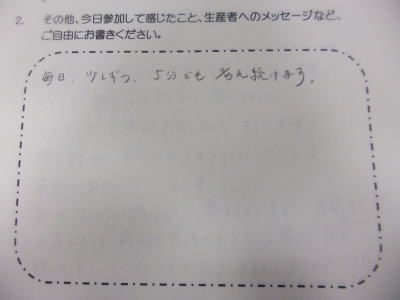 2. その他、今日参加して感じたこと、生産者へのメッセージなど、
ご自由にお書きください。
毎日、少しずつ、5分でも 考え続けます。